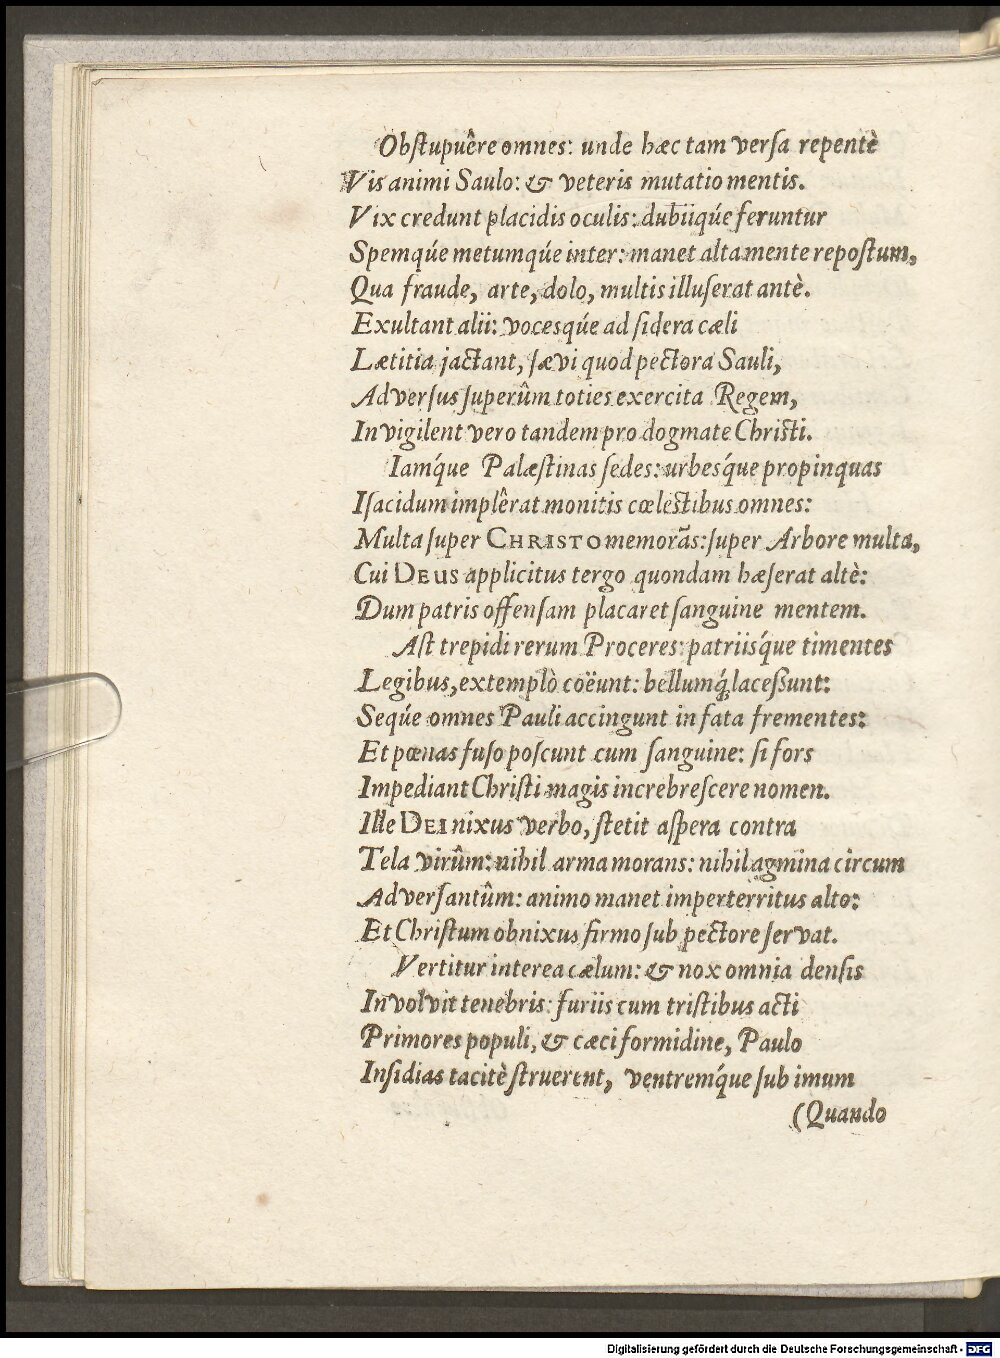 Obſtupuêre omnes: unde hæc tam verſa repentè
Vis animi Saulo: & veteris mutatio mentis.
Vix credunt placidis oculis: dubiiq́ue feruntur
Spemq́ue metumq́ue inter: manet alta mente repoſtum,
Qua fraude, arte, dolo, multis illuſerat antè.
Exultant alii: vocesq́ue ad ſidera cæli
Lætitia jactant, ſævi quod pectora Sauli,
Adverſus ſuperûm toties exercita Regem,
Invigilent vero tandem pro dogmate Chriſti.
Iamq́ue Palæſtinas ſedes: urbesq́ue propinquas
Iſacidum implêrat monitis cœleſtibus omnes:
Multa ſuper CHRISTO memorãs: ſuper Arbore multa,
Cui DEUS applicitus tergo quondam hæſerat altè:
Dum patris offenſam placaret ſanguine mentem.
Aſt trepidi rerum Proceres: patriisq́ue timentes
Legibus, extemplò coëunt: bellumq́; laceßunt:
Seq́ue omnes Pauli accingunt in fata frementes:
Et pœnas fuſo poſcunt cum ſanguine: ſi fors
Impediant Chriſti magis increbreſcere nomen.
Ille DEI nixus verbo, ſtetit aſpera contra
Tela virûm: nihil arma morans: nihil agmina circum
Adverſantûm: animo manet imperterritus alto:
Et Chriſtum obnixus firmo ſub pectore ſervat.
Vertitur interea cælum: & nox omnia denſis
Involvit tenebris: furiis cum triſtibus acti
Primores populi, & cæci formidine, Paulo
Inſidias tacitè ſtruerent, ventremq́ue ſub imum
(Quando
Digitalisierung gefördert durch die Deutsche Forschungsgemeinschaft - DFG